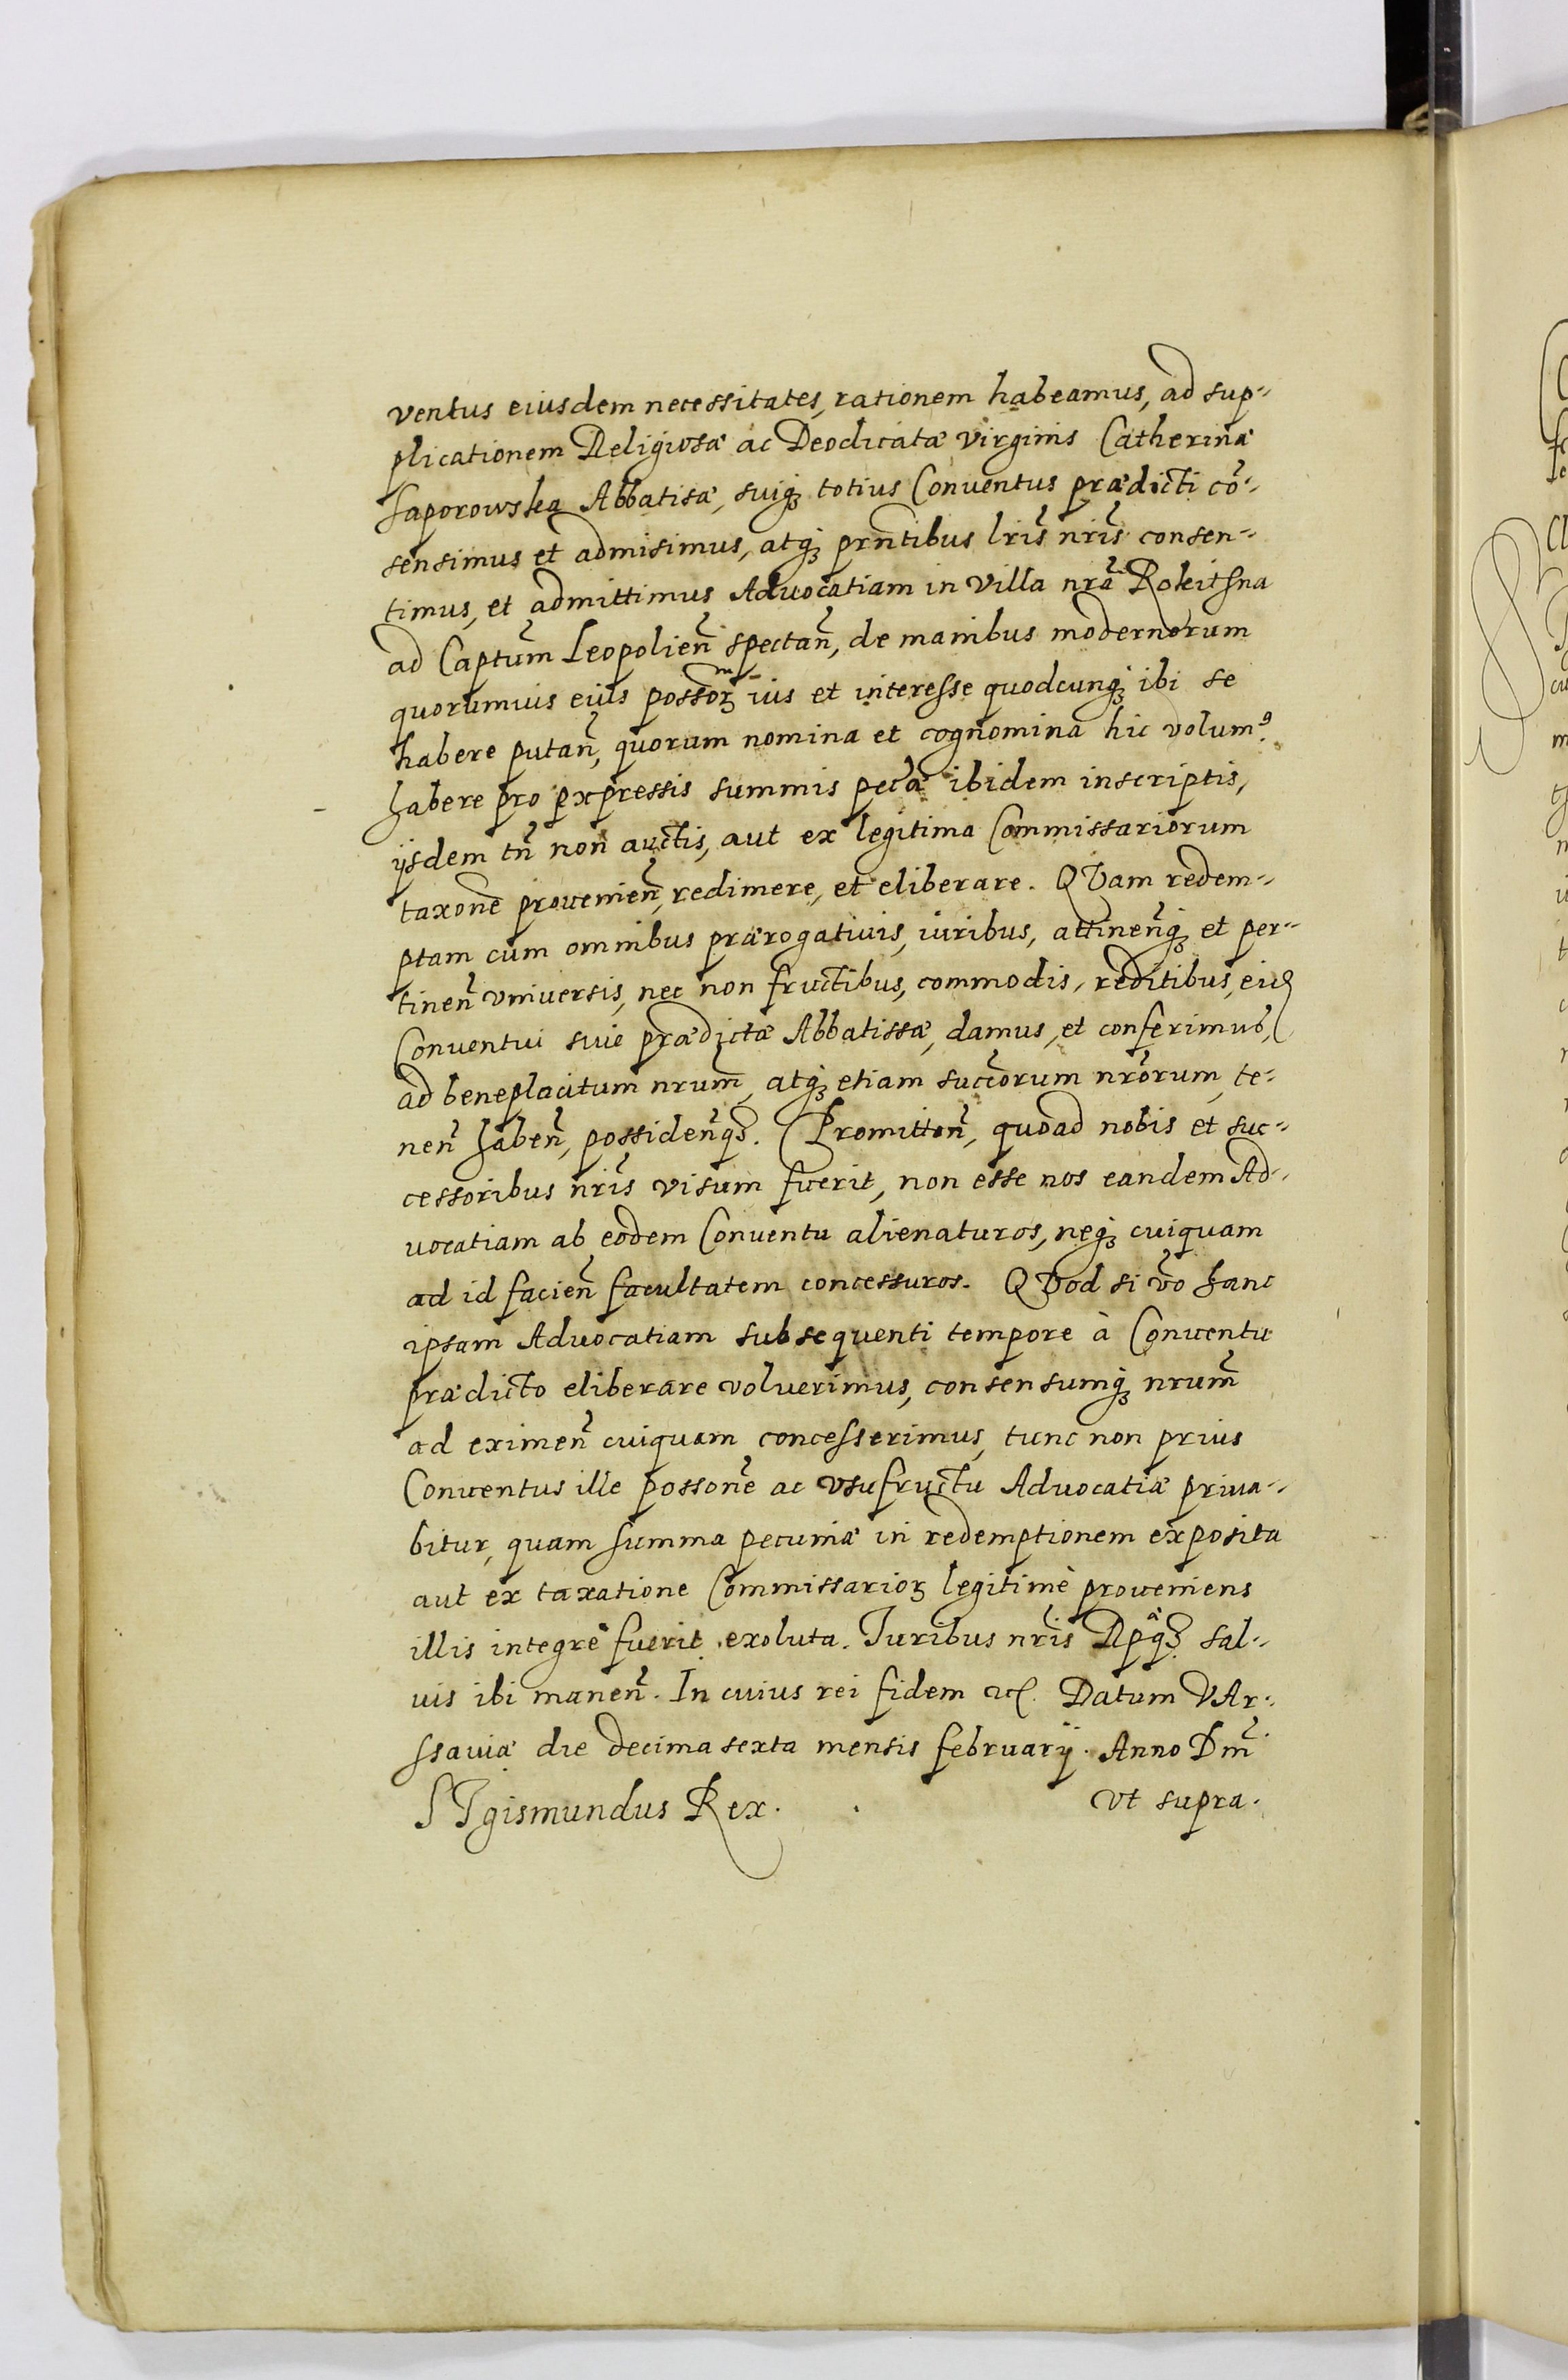 ventus eiusdem necessitates, rationem habeamus, ad sup-
plicationem Religiosæ ac Deodicatæ virginis Catherinæ
Saporowska Abbatisæ, suiq; totius Conventus prædicti cõ-
sensimus et admisimus, atq; prñtibus lris nris consen-
timus, et admittimus Advocatiam in Villa nrã Rokitsna
ad Captum Leopolien̄ spectan̄, de manibus modernorum
quorumuis eius possor̃ ius et interesse quodcunq; ibi se
habere putan̄, quorum nomina et cognomina hic volum9
habere pro expressis summis pecæ ibidem inscriptis,
ijsdem tñ non auctis, aut ex legitima Commissariorum
taxone provenien̄, redimere, et eliberare. QVam redem-
ptam cum omnibus prærogativis, iuribus, attinen̄q; et per-
tinen̄ vniversis, nec non fructibus, commodis, reditibus, eid
Conventui siue prædictæ Abbatissæ, damus, et conferimus,
ad beneplacitum nrum, atq; etiam succorum nrorum, te-
nen̄ haben̄, possiden̄q;. Promitten̄, quoad nobis et suc-
cessoribus nris visum fuerit, non esse nos eandem Ad-
uocatiam ab eodem Conventu alienaturos, neq; cuiquam
ad id facien̄ facultatem concessuros. QVod si vo hanc
ipsam Advocatiam subsequenti tempore à Conventu
prædicto eliberare voluerimus, consensumq; nrum
ad eximen̄ cuiquam concesserimus, tunc non prius
Conventus ille possone ac vsufructu Advocatiæ priua-
bitur, quam summa pecuniæ in redemptionem exposita
aut ex taxatione Commissarior̃ legitimè proveniens
illis integrè fuerit exoluta. Iuribus nris Rpq; sal-
uis ibi manen̄. In cuius rei fidem etc. Datum VAr-
ssaviæ die decima sexta mensis februarij. Anno Dm̄
ut supra.
SIgismundus Rex.